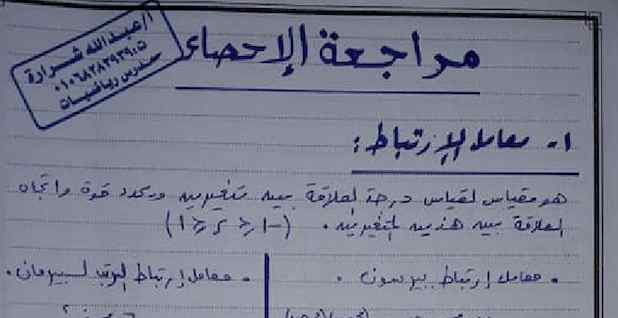 أ/عبدالله شرارة
٠١٠٦٨٢٨٣٩٣٩٠٥
مدرس رياضيات
مراجعة الإحصاء
١- معامل الإرتباط :
هو مقياس لقياس درجة العلاقة بين متغيرين ويحدد قوة واتجاه
العلاقة بين هذين المتغيرين . (-١ ≤ ر ≤ ١)
• معامل إرتباط بيرسون .
• معامل إرتباط الرتب لسبيرمان .